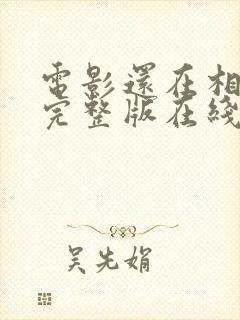 電影還在相
完整版在綫
吴先娟